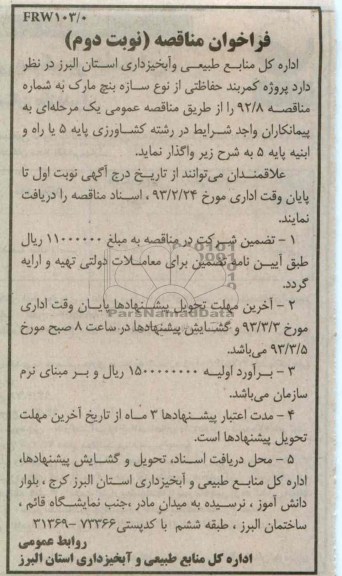 FRW۱۰۳/۰
فراخوان مناقصه (نوبت دوم)
اداره کل منابع طبیعی وآبخیزداری استان البرز در نظر
دارد پروژه کمربند حفاظتی از نوع سازه بنچ مارک به شماره
مناقصه ۹۲/۸ را از طریق مناقصه عمومی یک مرحله‌ای به
پیمانکاران واجد شرایط در رشته کشاورزی پایه ۵ یا راه و
ابنیه پایه ۵ به شرح زیر واگذار نماید.
علاقمندان می‌توانند از تاریخ درج آگهی نوبت اول تا
پایان وقت اداری مورخ ۹۳/۲/۲۴ ، اسناد مناقصه را دریافت
نمایند.
۱ – تضمین شرکت در مناقصه به مبلغ ۱۱۰۰۰۰۰۰ ریال
طبق آیین نامه تضمین برای معاملات دولتی تهیه و ارایه
گردد.
۲ – آخرین مهلت تحویل پیشنهادها پایان وقت اداری
مورخ ۹۳/۳/۳ و گشایش پیشنهادها در ساعت ۸ صبح مورخ
۹۳/۳/۵ می‌باشد.
ParsNamadData
۳ – برآورد اولیه ۱۵۰۰۰۰۰۰۰۰ ریال و بر مبنای نرم
سازمان می‌باشد.
۴ – مدت اعتبار پیشنهادها ۳ ماه از تاریخ آخرین مهلت
تحویل پیشنهادها است.
۵ – محل دریافت اسناد، تحویل و گشایش پیشنهادها،
اداره کل منابع طبیعی و آبخیزداری استان البرز کرج ، بلوار
دانش آموز ، نرسیده به میدان مادر ،جنب نمایشگاه قائم ،
ساختمان البرز ، طبقه ششم با کدپستی ۷۳۳۶۶–۳۱۳۶۹
روابط عمومی
اداره کل منابع طبیعی و آبخیزداری استان البرز